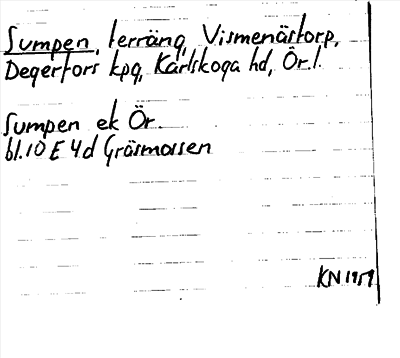 Sumpen, terräng, Vismenästorp,
Degerfors kpg, Karlskoga hd, Ör.l.
Sumpen ek Ör.
bl. 10 E 4d Gräsmossen
KN 1959